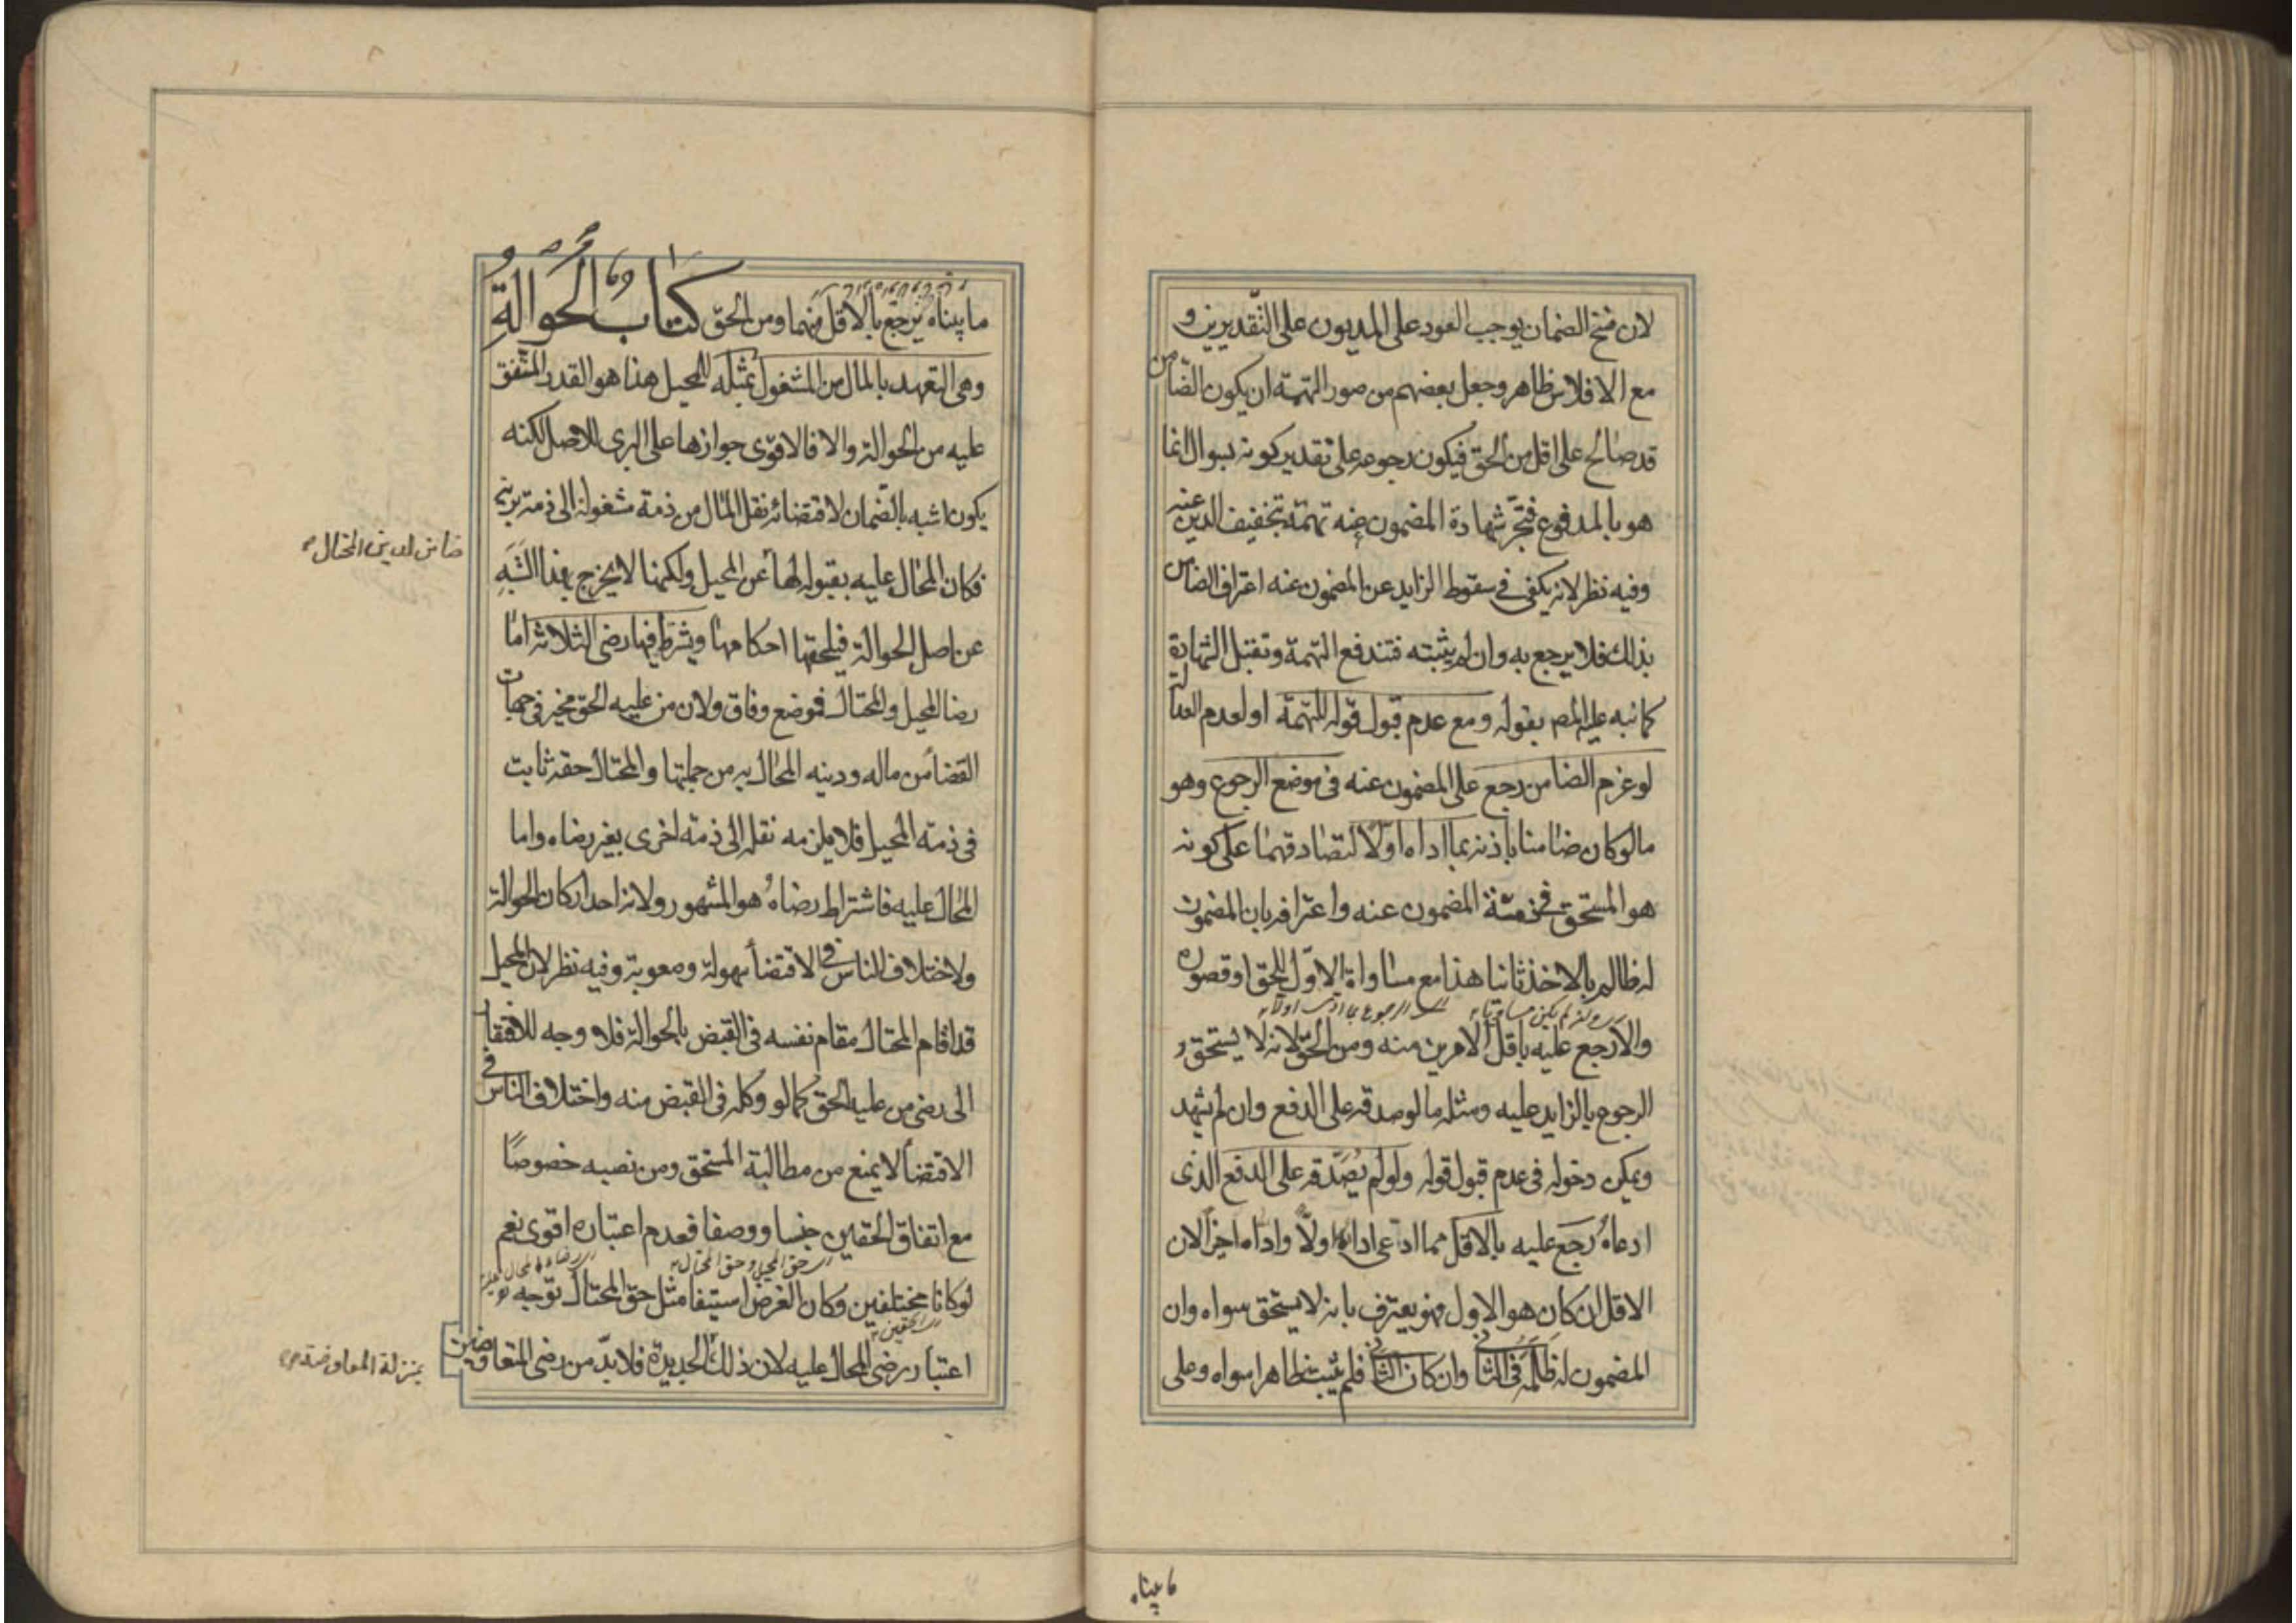 لان فسخ الضمان يوجب العود على المديون على التقديرين و
مع الافلاس ظاهر وجعل بعضهم من صور التهمة ان يكون الضامن
قد صالح على اقل من الحق فيكون رجوعه على تقدير كونه بسؤال انما
هو بالمدفوع فتجر شهادة المضمون عنه تهمة بتخفيف الدين عنه
وفيه نظر لانه يكفى فى سقوط الزايد عن المضمون عنه اعتراف الضامن
بذلك فلا يرجع به وان لم يثبته فتندفع التهمة وتقبل الشهادة
كما نبه عليه المص بقوله ومع عدم قبول قوله للتهمة او لعدم العدالة
لو غرم الضامن رجع على المضمون عنه فى موضع الرجوع وهو
ما لو كان ضامنا باذنه بما اداه اولا لتصادقهما على كونه
هو المستحق فى ذمة المضمون عنه واعترافه بان المضمون
له ظالم بالاخذ ثانيا هذا مع مساواة الاول للحق او قصوره
ے وان لم يكن مساويا ے الرجوع بما ادى اولا
والا رجع عليه باقل الامرين منه ومن الحق لانه لا يستحق
الرجوع بالزايد عليه ومثله ما لو صدقه على الدفع وان لم يشهد
ويمكن دخوله فى عدم قبول قوله ولو لم يصدقه على الدفع الذى
ادعاه رجع عليه بالاقل مما ادعى اداءه اولا واداه اخيرا لان
الاقل ان كان هو الاول فهو يعترف بانه لا يستحق سواه وان
المضمون له ظلمه فى الثانى وان كان الثانى فلم يثبت ظاهرا سواه وعلى
ما بيناه
ما بيناه يرجع بالاقل منهما ومن الحق كتاب الحوالة
وهى التعهد بالمال من المشغول بمثله للمحيل هذا هو القدر المتفق
عليه من الحوالة والا فالاقوى جوازها على البرى للاصل لكنه
يكون اشبه بالضمان لاقتضائه نقل المال من ذمة مشغولة الى ذمة برية
فكان المحال عليه بقبوله لها عن المحيل ولكنها لا يخرج بهذا الشبه
ضامن لدين المحتال
عن اصل الحوالة فيلحقها احكامها ويشترط فيها رضى الثلاثة اما
رضا المحيل والمحتال فموضع وفاق ولان من عليه الحق مخير فى جهات
القضاء من ماله ودينه المحال به من جملتها والمحتال حقه ثابت
فى ذمة المحيل فلا يلزمه نقله الى ذمة اخرى بغير رضاه واما
المحال عليه فاشتراط رضاه هو المشهور ولانه احد اركان الحوالة
ولاختلاف الناس فى الاقتضاء سهولة وصعوبة وفيه نظر لان المحيل
قد اقام المحتال مقام نفسه فى القبض بالحوالة فلا وجه للافتقار
الى رضى من عليه الحق كما لو وكله فى القبض منه واختلاف الناس فى
الاقتضاء لا يمنع من مطالبة المستحق ومن نصبه خصوصا
مع اتفاق الحقين جنسا ووصفا فعدم اعتباره اقوى نعم
ے حق المحيل وحق المحتال
لو كانا مختلفين وكان الغرض استيفا مثل حق المحتال توجه
ے الحقين
اعتبار رضى المحال عليه لان ذلك الجديدة فلا بد من رضى المتعاوضين
بمنزلة المعاوضة